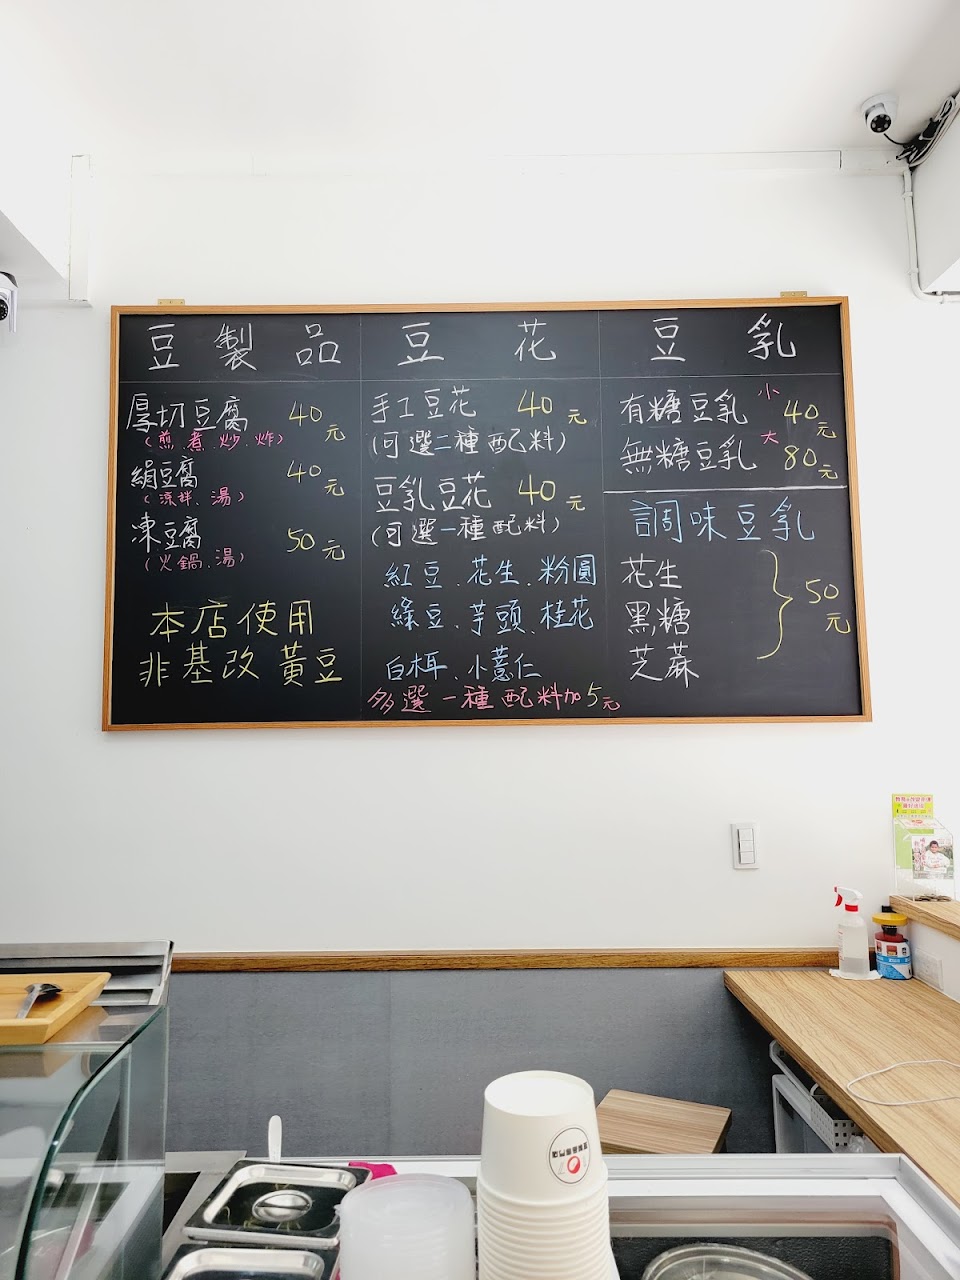 豆製品
厚切豆腐 40元
(煎.煮.炒.炸)
絹豆腐 40元
(涼拌.湯)
凍豆腐 50元
(火鍋.湯)
本店使用
非基改黃豆
豆花
手工豆花 40元
(可選二種配料)
豆乳豆花 40元
(可選一種配料)
紅豆.花生.粉圓
綠豆.芋頭.桂花
白木耳.小薏仁
多選一種配料加5元
豆乳
有糖豆乳 小 40元
無糖豆乳 大 80元
調味豆乳
花生
黑糖
芝蔴
50元